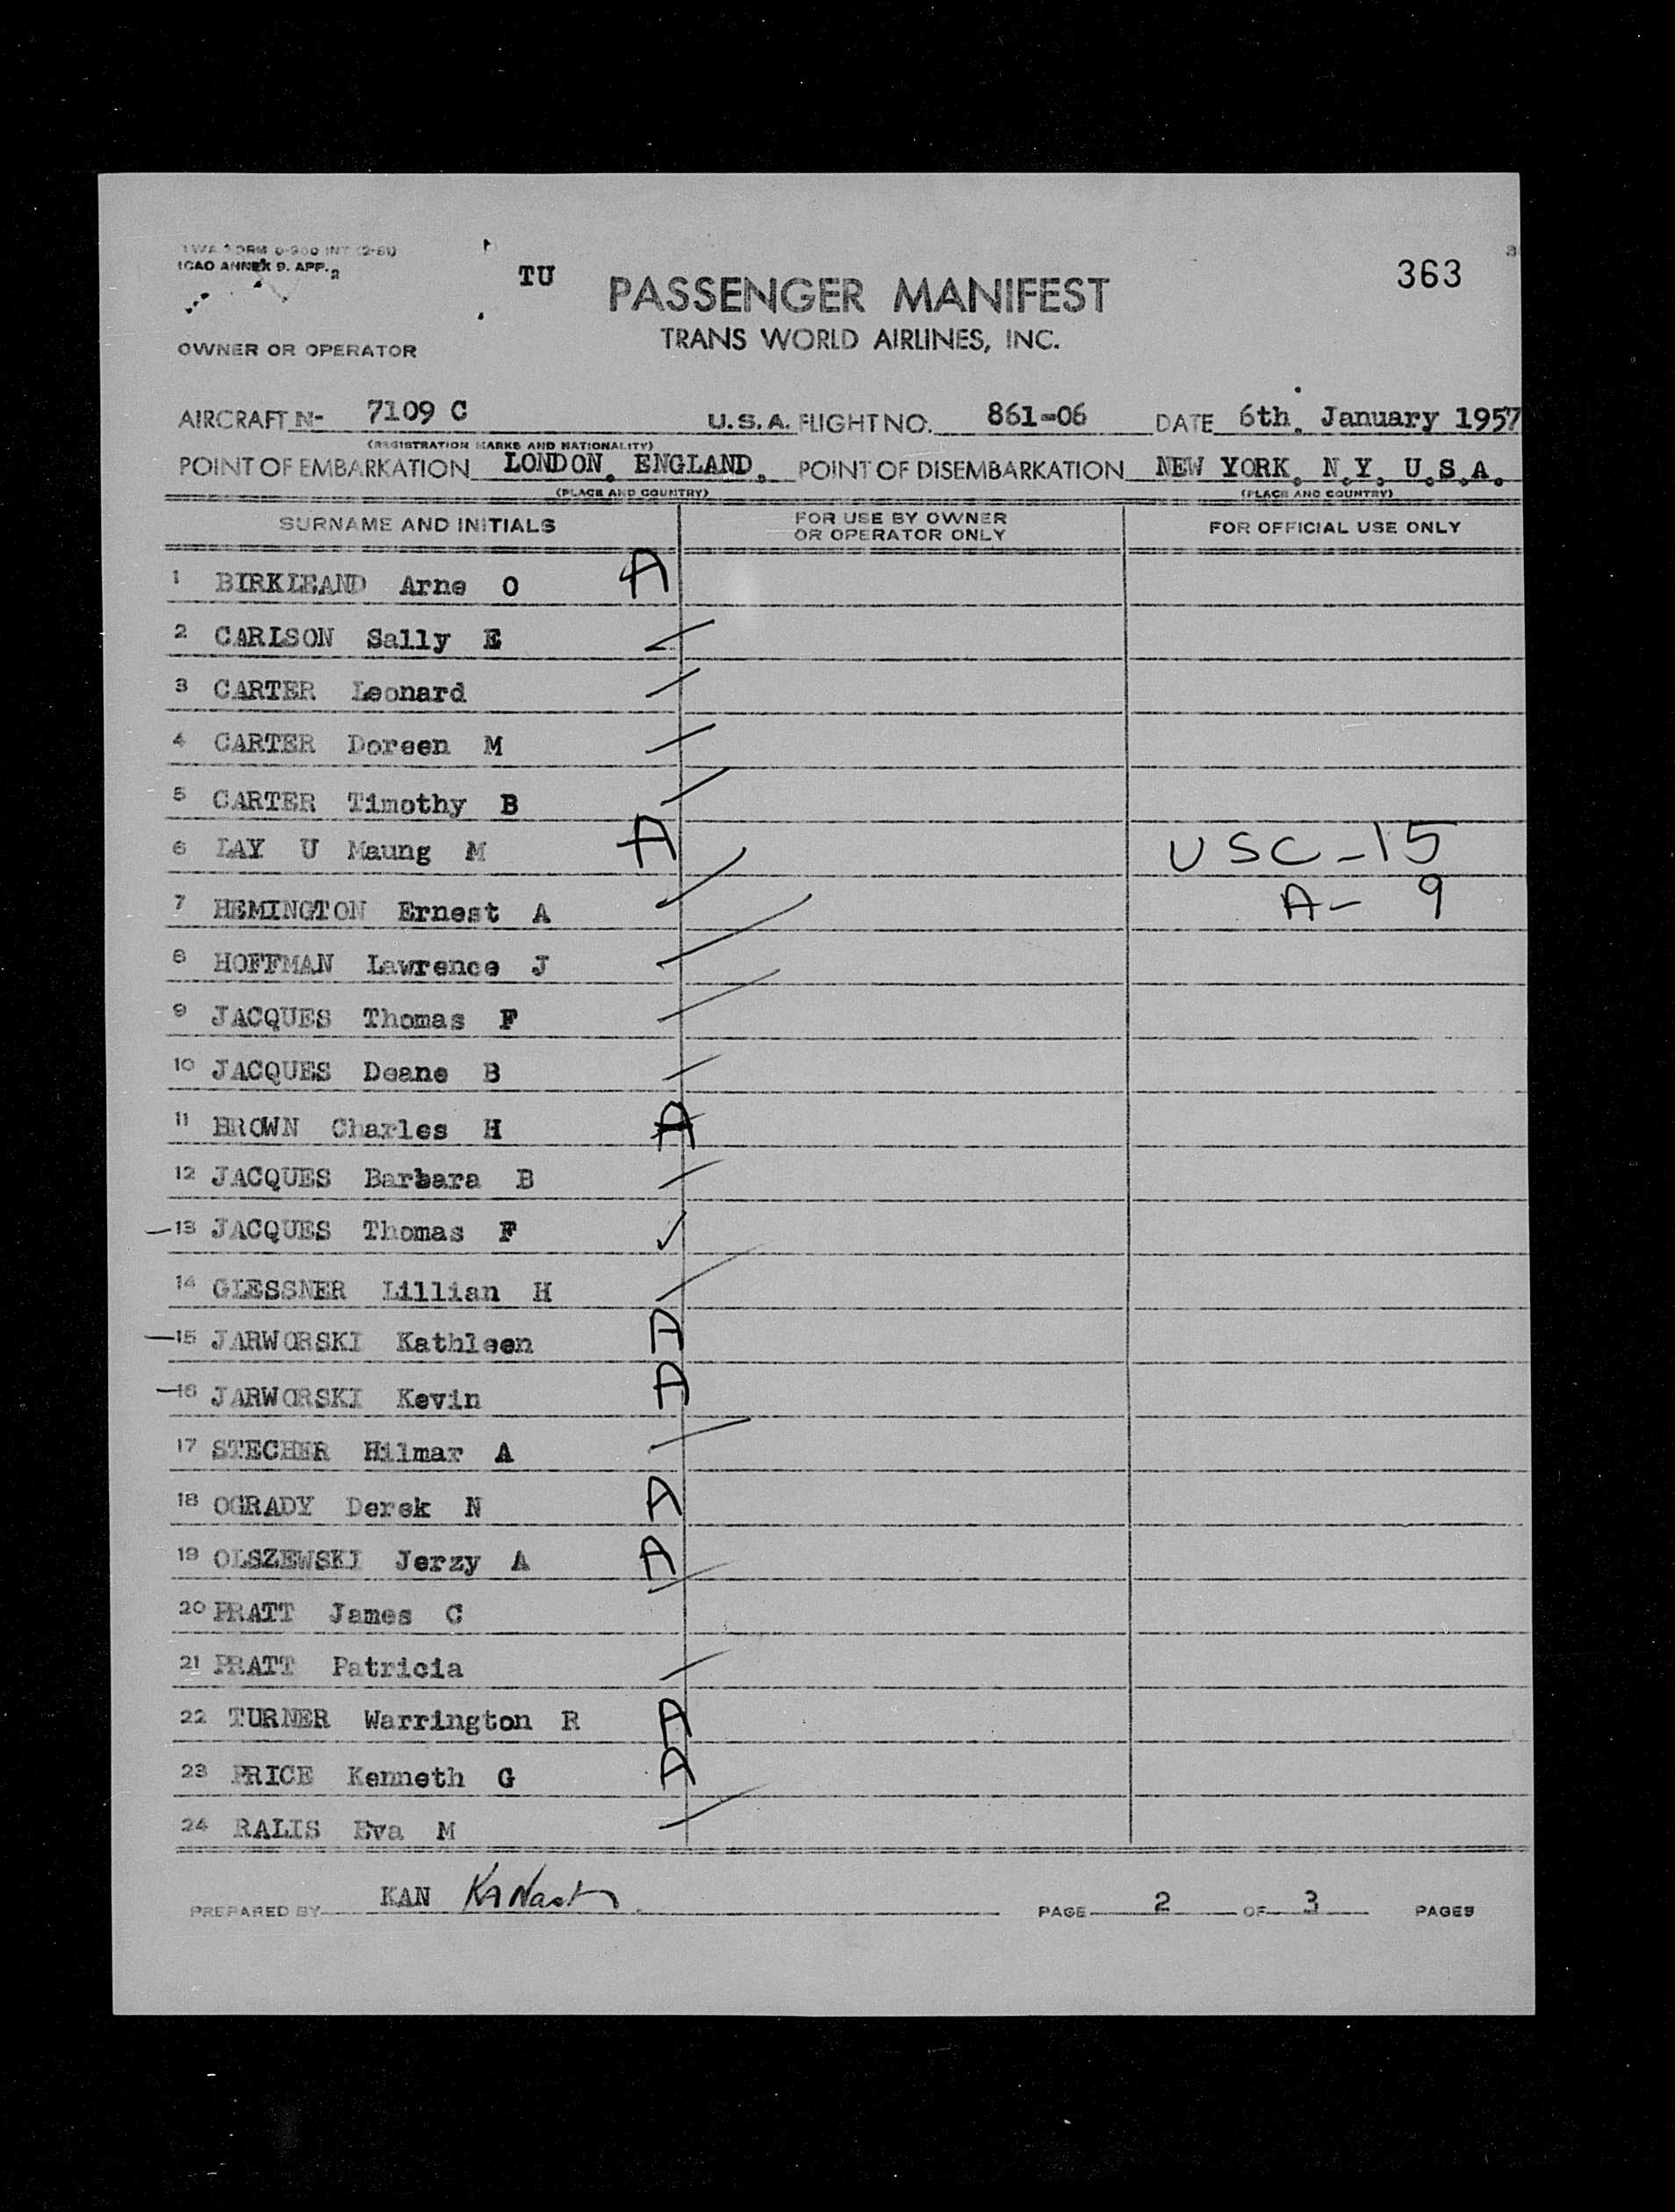 TWA FORM 0-900 INT (2-51)
ICAO ANNEX 9. APP. 2
TU
363
PASSENGER MANIFEST
TRANS WORLD AIRLINES, INC.
OWNER OR OPERATOR
AIRCRAFT N- 7109 C U.S.A. FLIGHT NO. 861-06 DATE 6th. January 1957
(REGISTRATION MARKS AND NATIONALITY)
POINT OF EMBARKATION LONDON. ENGLAND. POINT OF DISEMBARKATION NEW YORK. N.Y. U.S.A.
(PLACE AND COUNTRY) (PLACE AND COUNTRY)
SURNAME AND INITIALS FOR USE BY OWNER OR OPERATOR ONLY FOR OFFICIAL USE ONLY
1 BIRKLEAND Arne O A
2 CARLSON Sally E
3 CARTER Leonard
4 CARTER Doreen M
5 CARTER Timothy B
6 LAY U Maung M A USC-15
7 HEMINGTON Ernest A A- 9
8 HOFFMAN Lawrence J
9 JACQUES Thomas F
10 JACQUES Deane B
11 BROWN Charles H A
12 JACQUES Barbara B
13 JACQUES Thomas F ✓
14 GLESSNER Lillian H
15 JARWORSKI Kathleen A
16 JARWORSKI Kevin A
17 STECHER Hilmar A
18 OGRADY Derek N A
19 OLSZEWSKI Jerzy A A
20 PRATT James C
21 PRATT Patricia
22 TURNER Warrington R A
23 PRICE Kenneth G A
24 RALIS Eva M
PREPARED BY KAN PAGE 2 OF 3 PAGES